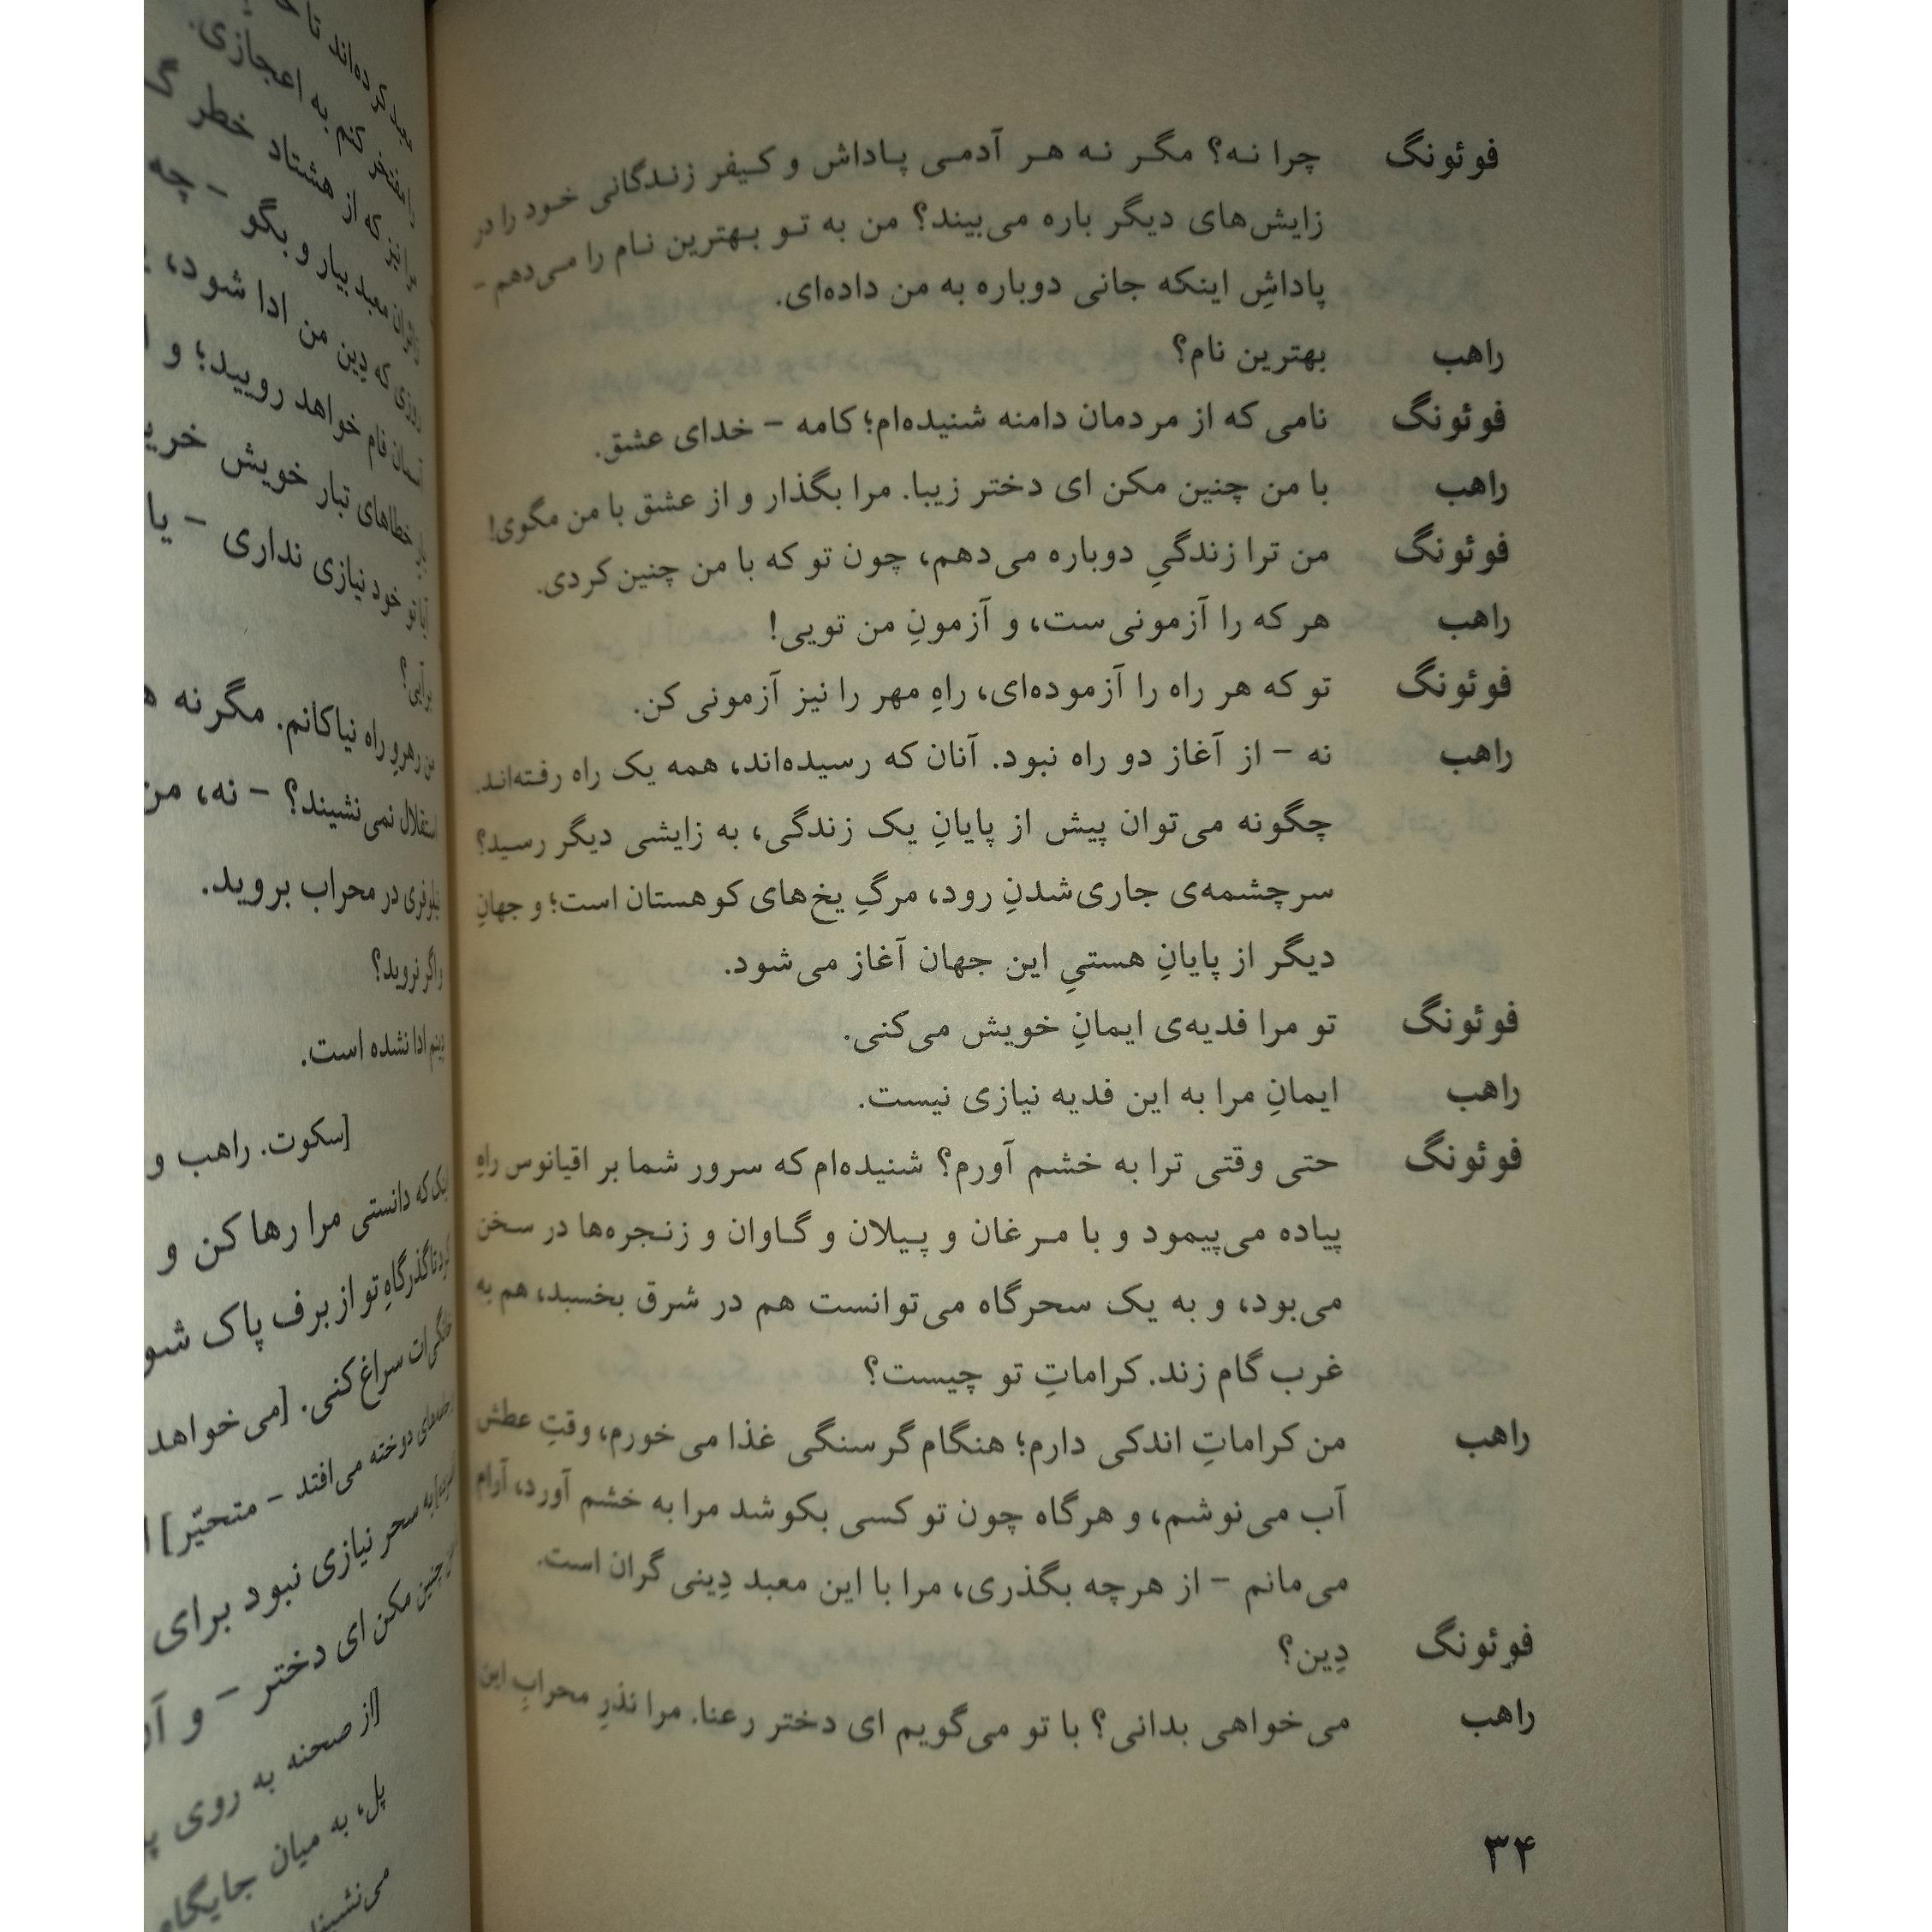 فوئونگ چرا نه؟ مگر نه هر آدمی پاداش و کیفر زندگانی خود را در
زایش‌های دیگر باره می‌بیند؟ من به تو بهترین نام را می‌دهم -
پاداشِ اینکه جانی دوباره به من داده‌ای.
راهب بهترین نام؟
فوئونگ نامی که از مردمان دامنه شنیده‌ام؛ کامه - خدای عشق.
راهب با من چنین مکن ای دختر زیبا. مرا بگذار و از عشق با من مگوی!
فوئونگ من ترا زندگیِ دوباره می‌دهم، چون تو که با من چنین کردی.
راهب هر که را آزمونی‌ست، و آزمونِ من تویی!
فوئونگ تو که هر راه را آزموده‌ای، راهِ مهر را نیز آزمونی کن.
راهب نه - از آغاز دو راه نبود. آنان که رسیده‌اند، همه یک راه رفته‌اند.
چگونه می‌توان پیش از پایانِ یک زندگی، به زایشی دیگر رسید؟
سرچشمه‌ی جاری‌شدنِ رود، مرگِ یخ‌های کوهستان است؛ و جهانِ
دیگر از پایانِ هستیِ این جهان آغاز می‌شود.
فوئونگ تو مرا فدیه‌ی ایمانِ خویش می‌کنی.
راهب ایمانِ مرا به این فدیه نیازی نیست.
فوئونگ حتی وقتی ترا به خشم آورم؟ شنیده‌ام که سرور شما بر اقیانوس راهِ
پیاده می‌پیمود و با مرغان و پیلان و گاوان و زنجره‌ها در سخن
می‌بود، و به یک سحرگاه می‌توانست هم در شرق بخسبد، هم به
غرب گام زند. کراماتِ تو چیست؟
راهب من کراماتِ اندکی دارم؛ هنگام گرسنگی غذا می‌خورم، وقتِ عطش
آب می‌نوشم، و هرگاه چون تو کسی بکوشد مرا به خشم آورد، آرام
می‌مانم - از هرچه بگذری، مرا با این معبد دِینی گران است.
فوئونگ دِین؟
راهب می‌خواهی بدانی؟ با تو می‌گویم ای دختر رعنا. مرا نذرِ محرابِ این
۳۴
به اعجازی.
که از هشتاد خطر
معبد بیار و بگو - چه
که دِین من ادا شود،
فام خواهد رویید؛ و
خطاهای تبار خویش
خود نیازی نداری - یا
رهروِ راه نیاکانم. مگر نه
نمی‌نشیند؟ - نه، من
نیلوفری در محراب بروید.
واگر نروید؟
دینم ادا نشده است.
[سکوت. راهب و
که دانستی مرا رها کن و
تا گذرگاهِ تو از برف پاک
سراغ کنی. [می‌خواهد
دوخته می‌افتد - متحیّر]
به سحر نیازی نبود برای
چنین مکن ای دختر - و
[از صحنه به روی
پل، به میان